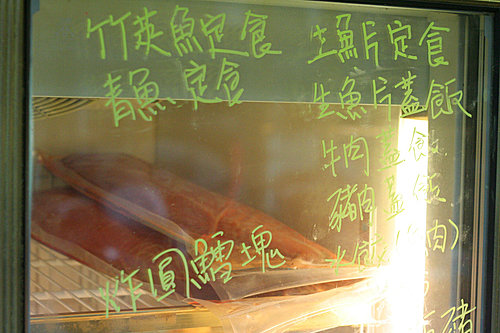 竹莢魚定食
青魚定食
炸圓鱈塊
生魚片定食
生魚片蓋飯
牛肉蓋飯
豬肉蓋飯
水餃(肉)
豬